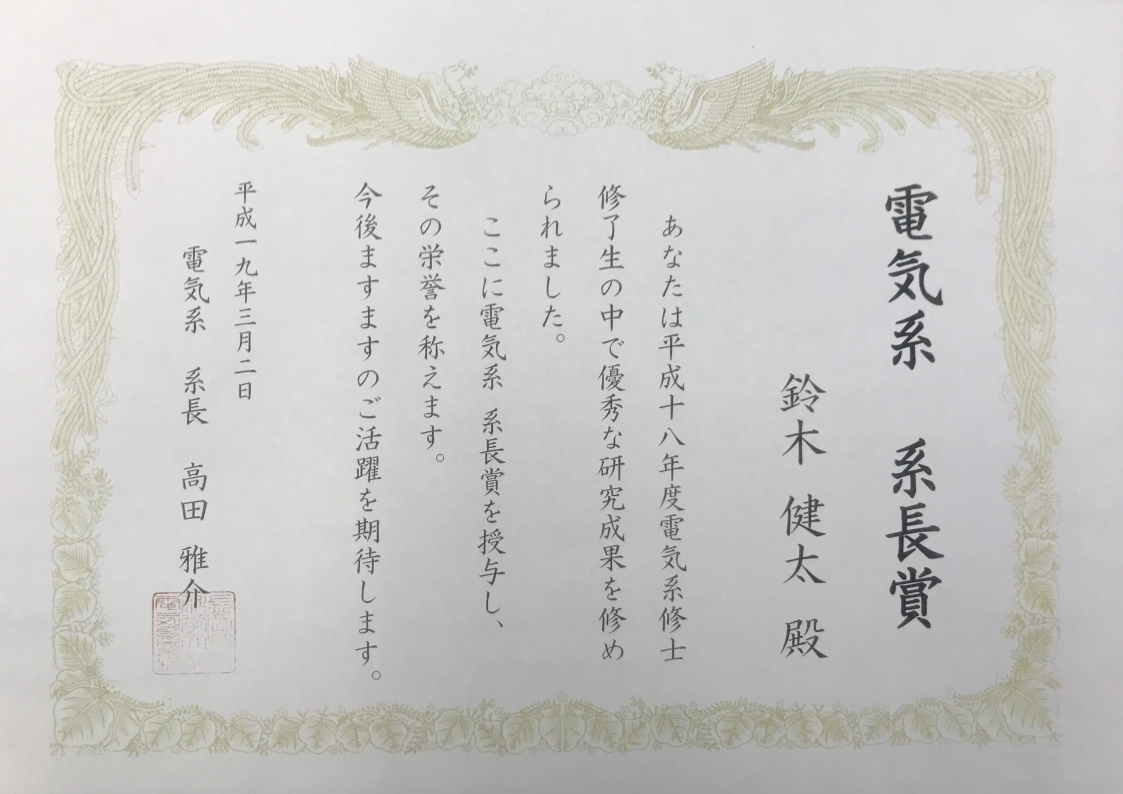 電気系　系長賞
鈴木　健太　殿
あなたは平成十八年度電気系修士
修了生の中で優秀な研究成果を修め
られました。
ここに電気系 系長賞を授与し、
その栄誉を称えます。
今後ますますのご活躍を期待します。
平成一九年三月二日
電気系　系長　高田　雅介